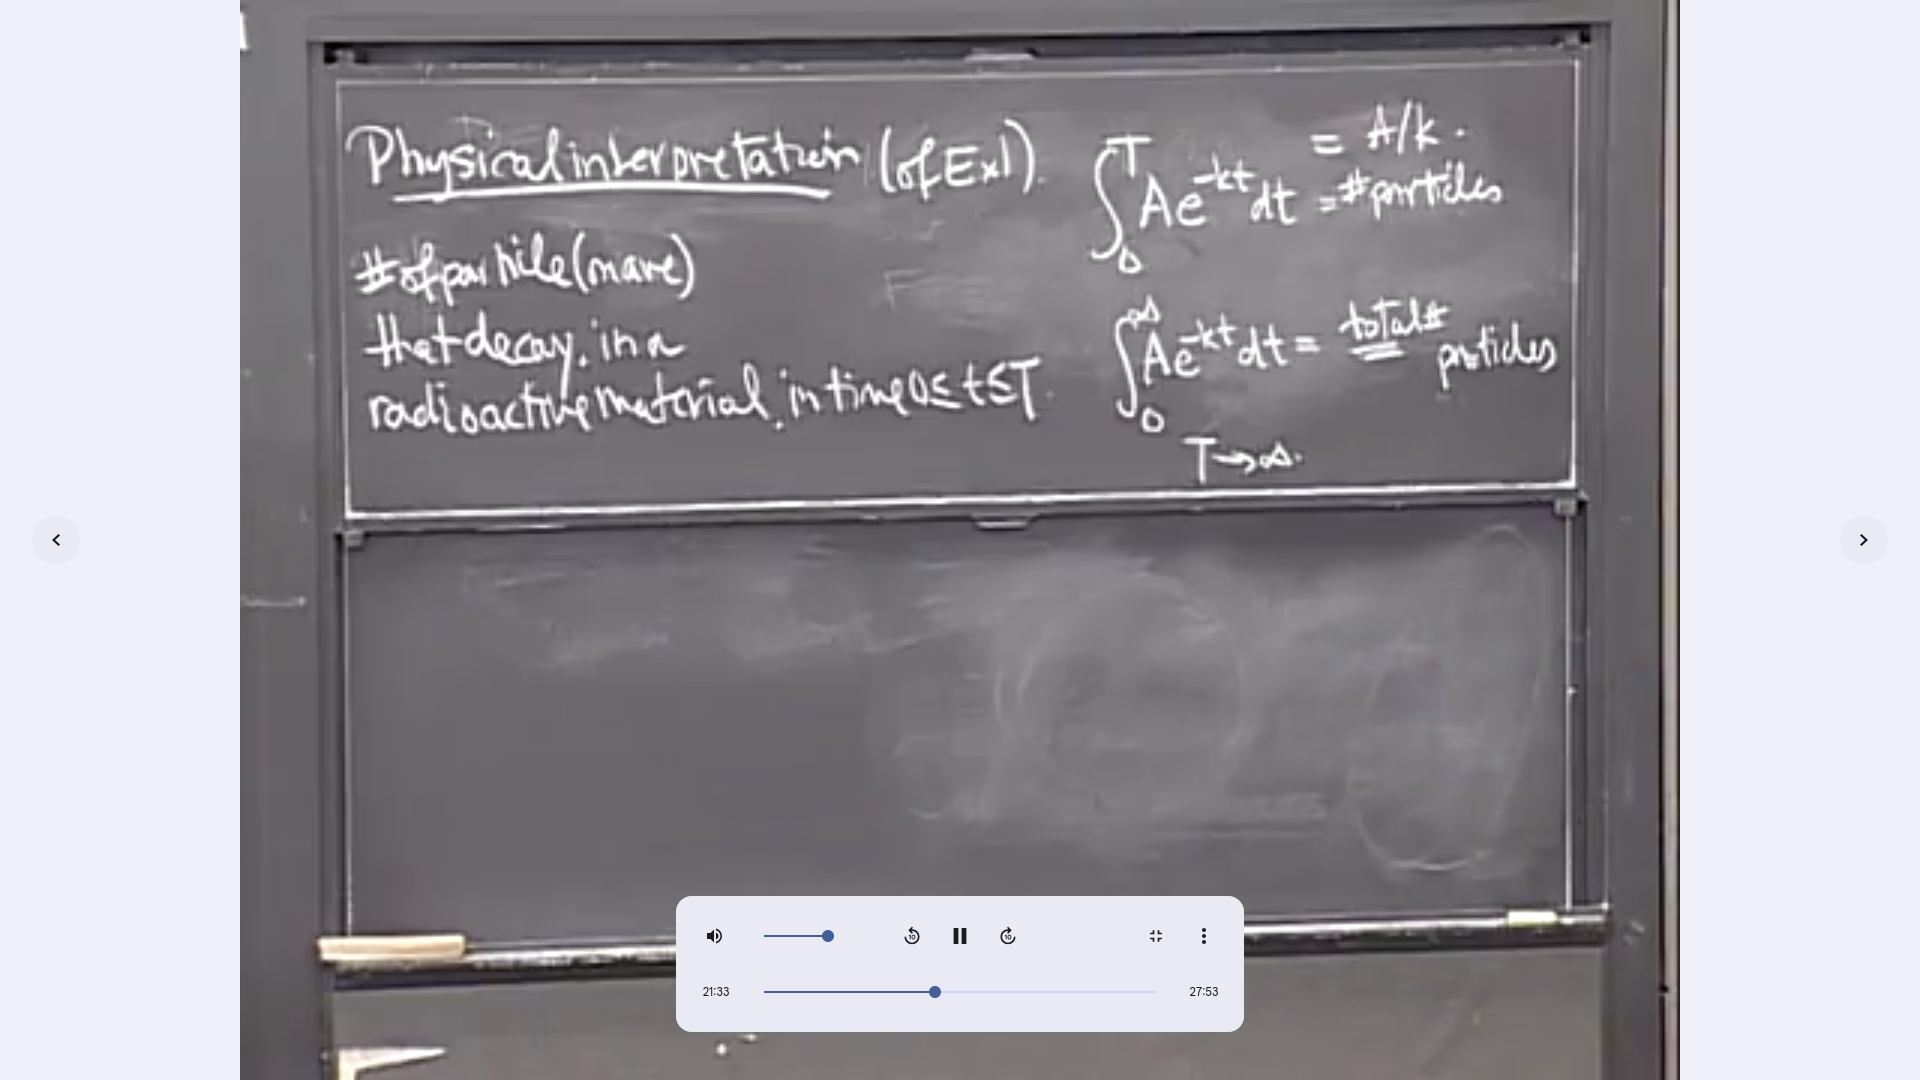 Physical interpretation (of Ex1).
# of particle (mare)
that decay, in a
radioactive material, in time 0 ≤ t ≤ T
= A/k.
∫₀ᵀ Ae^{-kt} dt = # particles
∫₀^∞ Ae^{-kt} dt = total # particles
T → ∞.
10
10
21:33
27:53